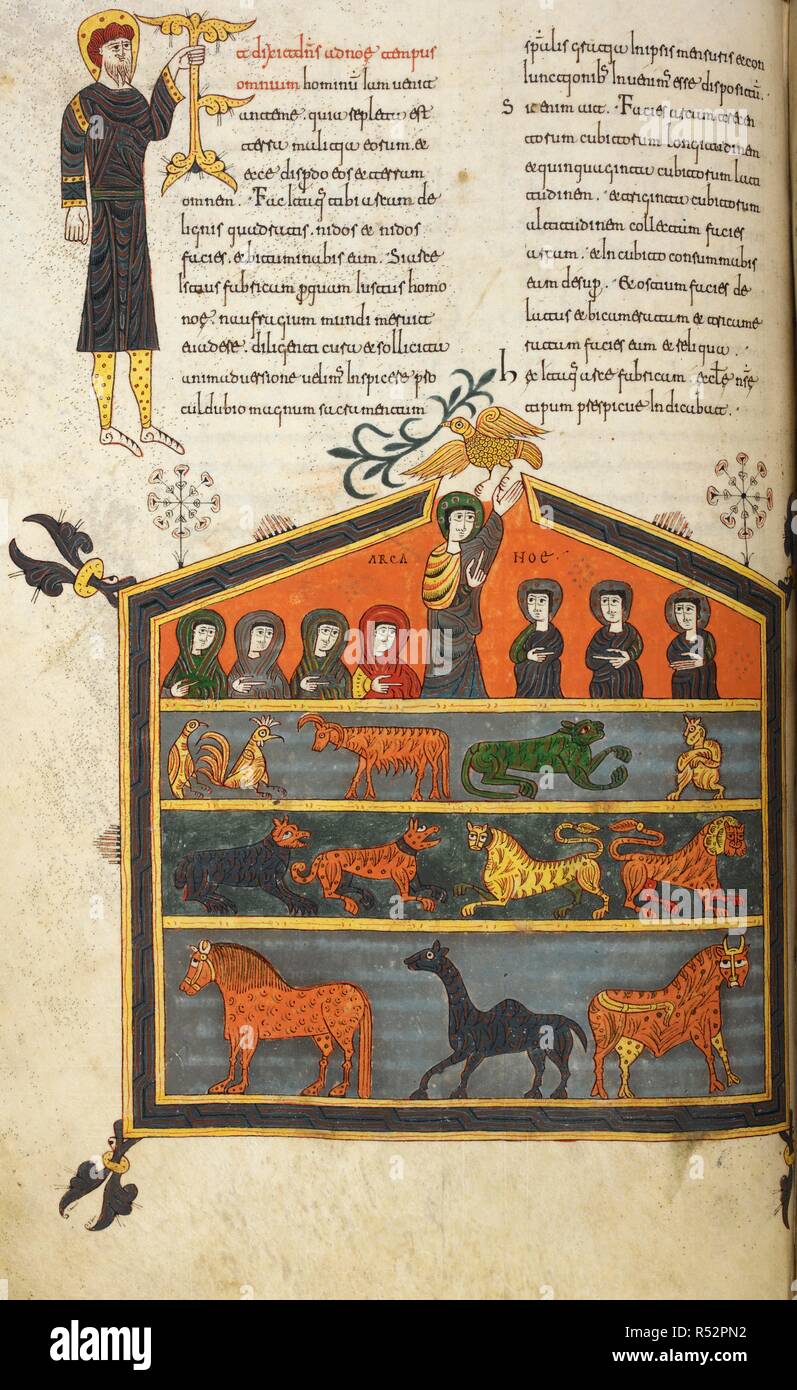 Et dixit dns ad noe tempus
omnium hominū iam uenit
ante me. quia repleta est
terra malitia eorum. et
ecce dispdo eos et terram
omnem. Fac itaq tibi arcam de
lignis quadratis. nidos et nidos
facies. et bituminabis eam. Si arce
istius fabricam pquam iustus homo
noe. naufragium mundi meruit
euadere. diligenti cura et sollicita
animaduersione uelim inspicere pro
cul dubio magnum sacramentum
spūalis gratia in ipsis mensuris et con
iunctionib inuenim esse dispositū.
Sic enim ait. Facies arcam trecen
torum cubitorum longitudinem
et quinquaginta cubitorum lati
tudinem. et triginta cubitorum
altitudinem collectam facies
arcam. et in cubito consummabis
eam desup. Et ostium facies de
latus et bicameratam et tricame
ratam facies eam et reliqua.
Hec itaq arce fabricam. eclē nrē
tipum prespicue indicabat.
ARCA NOE
alamy
Image ID: R52PN2
www.alamy.com